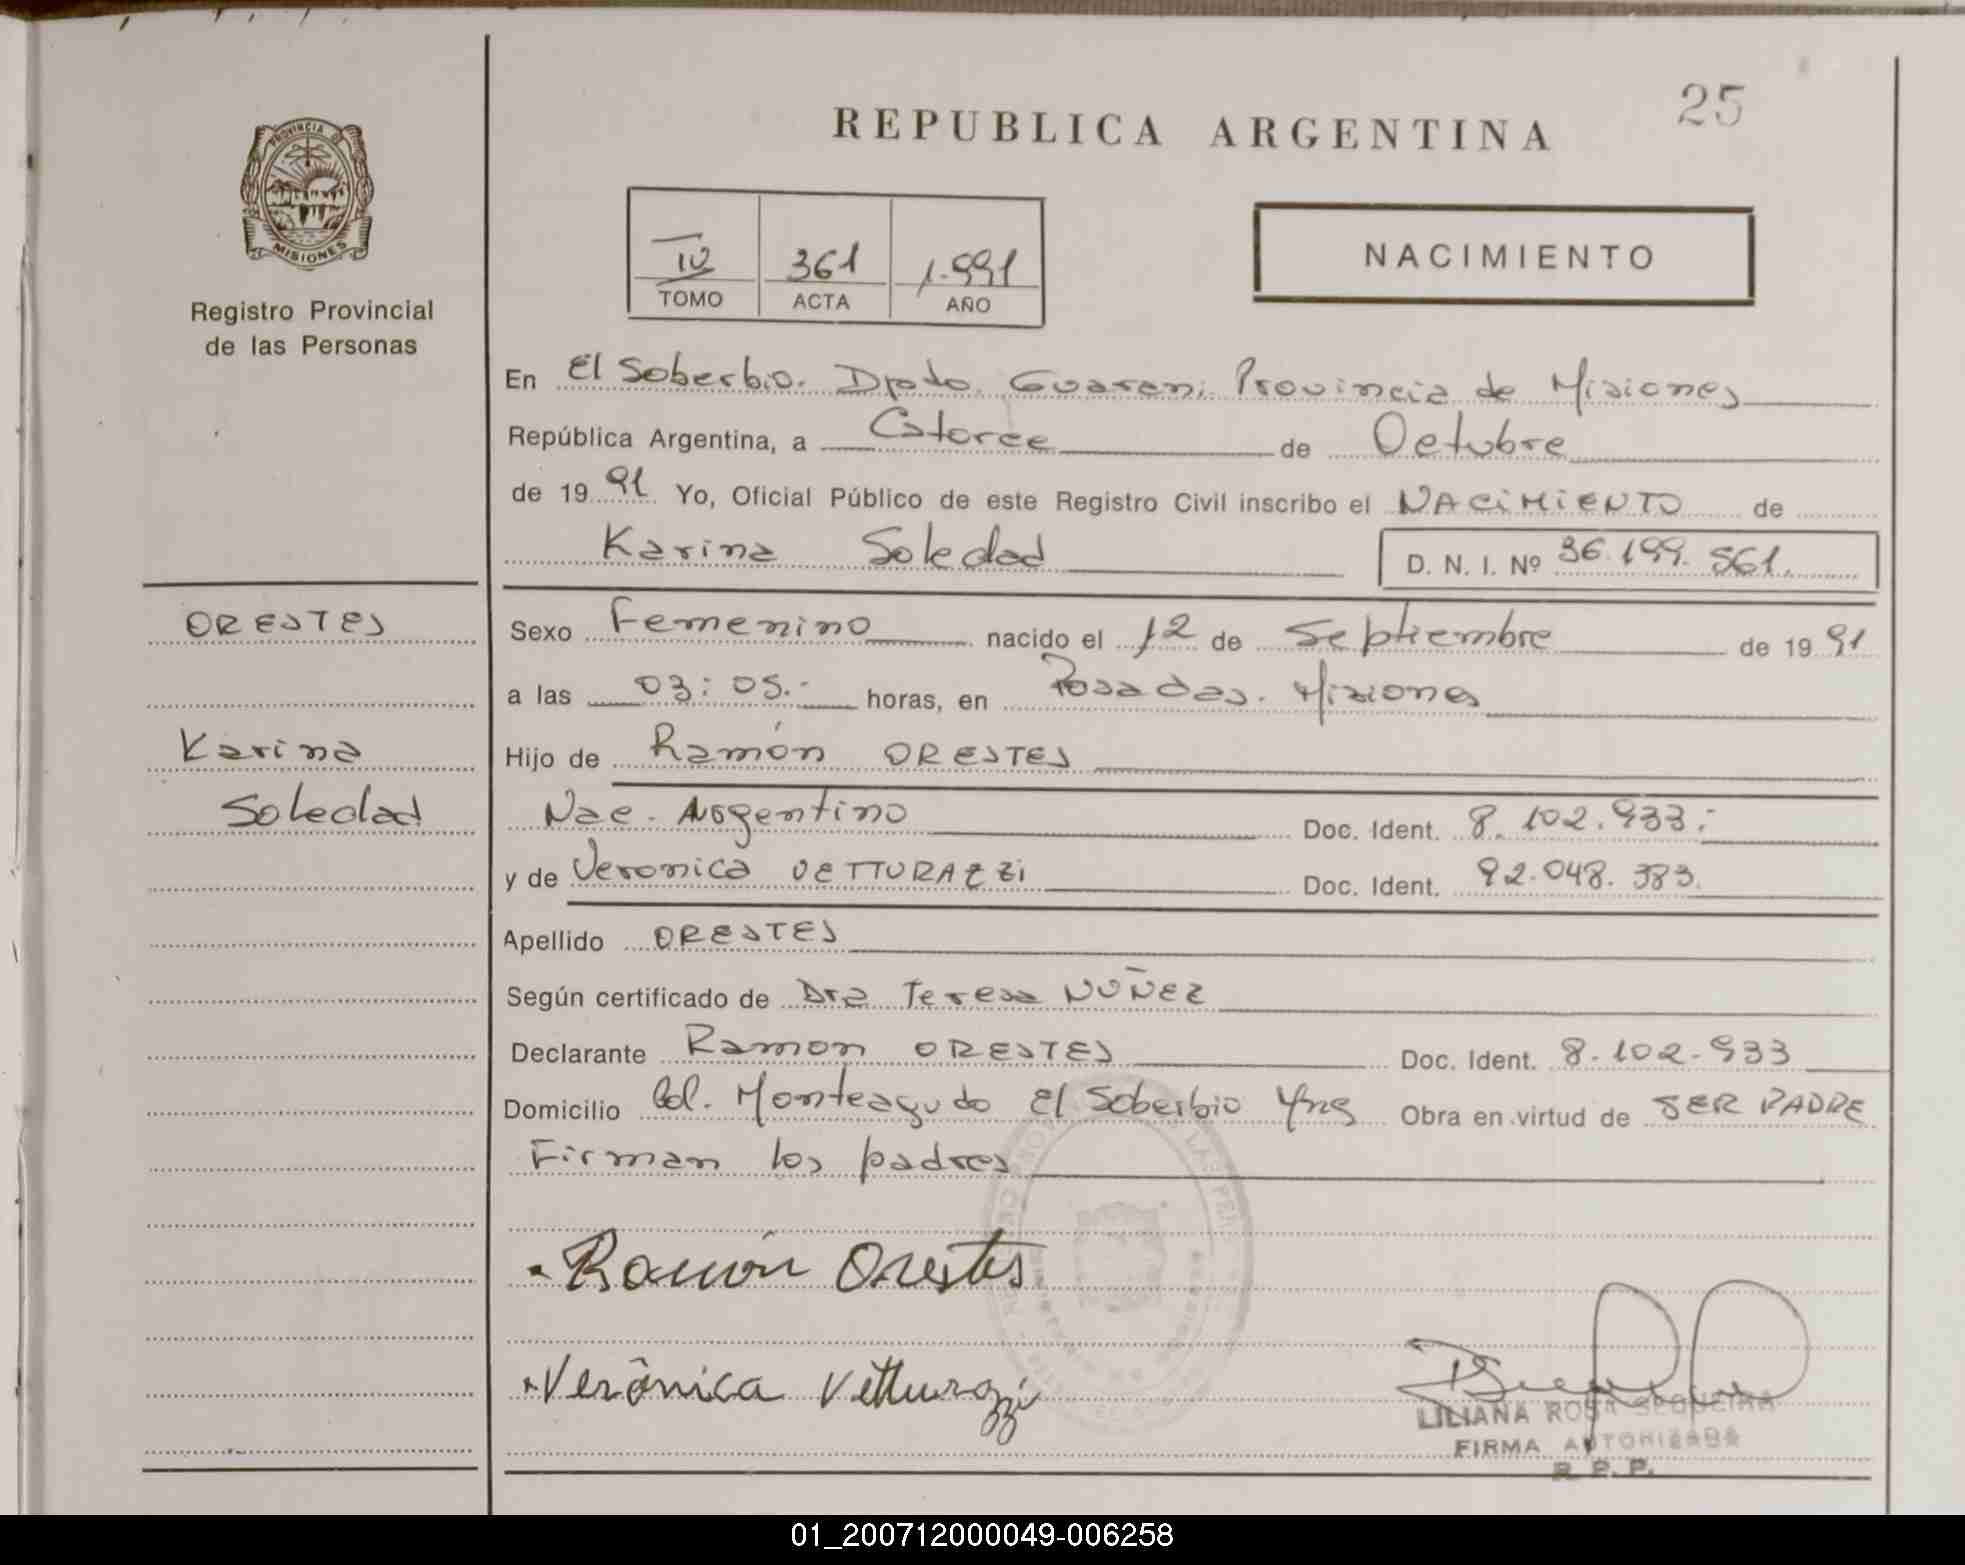 25
REPUBLICA ARGENTINA
PROVINCIA DE
MISIONES
Registro Provincial
de las Personas
361 1.991
TOMO ACTA AÑO
NACIMIENTO
En El Soberbio. Dpto. Guarani Provincia de Misiones
República Argentina, a Catorce de Octubre
de 1991 Yo, Oficial Público de este Registro Civil inscribo el NACIMIENTO de
Karina Soledad D. N. I. Nº 36.199.561.
ORESTES
Karina
Soledad
Sexo Femenino nacido el 12 de Septiembre de 1991
a las 03:05.- horas, en Posadas. Misiones
Hijo de Ramón ORESTES
Nac. Argentino Doc. Ident. 8.102.933.-
y de Veronica VETTURAZZi Doc. Ident. 92.048.383.
Apellido ORESTES
Según certificado de Dra Teresa NUÑEZ
Declarante Ramon ORESTES Doc. Ident. 8.102.933
Domicilio Col. Monteagudo El Soberbio Mnes Obra en virtud de SER PADRE
Firman los padres
Ramón Orestes
Verónica Vetturazzi
LILIANA ROSA SEQUEIRA
FIRMA AUTORIZADA
R. P. P.
01_200712000049-006258